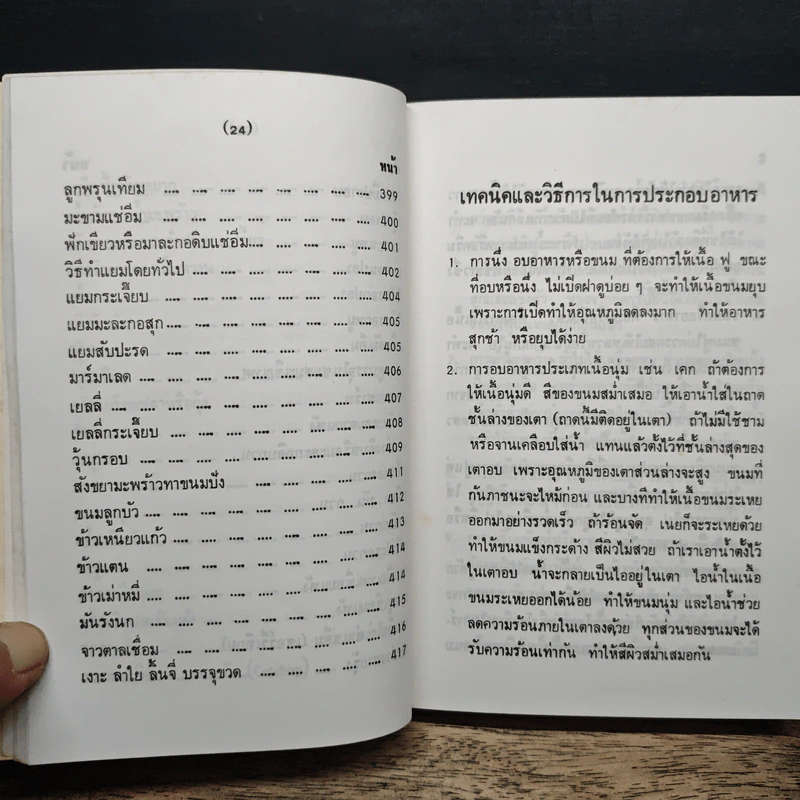 (24)
หน้า
ลูกพรุนเทียม .... .... .... .... .... .... .... 399
มะขามแช่อิ่ม .... .... .... .... .... .... .... 400
ฟักเขียวหรือมาละกอดิบแช่อิ่ม.... .... .... .... 401
วิธีทำแยมโดยทั่วไป .... .... .... .... .... 402
แยมกระเจี๊ยบ .... .... .... .... .... .... .... 404
แยมมะละกอสุก .... .... .... .... .... .... 405
แยมสับปะรด .... .... .... .... .... .... 405
มาร์มาเลด .... .... .... .... .... .... .... 406
เยลลี่ .... .... .... .... .... .... .... .... 407
เยลลี่กระเจี๊ยบ .... .... .... .... .... .... 408
วุ้นกรอบ .... .... .... .... .... .... .... 409
สังขยามะพร้าวทาขนมปัง .... .... .... .... 411
ขนมลูกบัว .... .... .... .... .... .... .... 412
ข้าวเหนียวแก้ว .... .... .... .... .... .... 413
ข้าวแตน .... .... .... .... .... .... .... 414
ข้าวเม่าหมี่ .... .... .... .... .... .... .... 414
มันรังนก .... .... .... .... .... .... .... 415
จาวตาลเชื่อม .... .... .... .... .... .... 416
เงาะ ลำไย ลิ้นจี่ บรรจุขวด .... .... .... .... 417
เทคนิคและวิธีการในการประกอบอาหาร
1. การนึ่ง อบอาหารหรือขนม ที่ต้องการให้เนื้อ ฟู ขณะ
ที่อบหรือนึ่ง ไม่เปิดฝาดูบ่อย ๆ จะทำให้เนื้อขนมยุบ
เพราะการเปิดทำให้อุณหภูมิลดลงมาก ทำให้อาหาร
สุกช้า หรือยุบได้ง่าย
2. การอบอาหารประเภทเนื้อนุ่ม เช่น เคก ถ้าต้องการ
ให้เนื้อนุ่มดี สีของขนมสม่ำเสมอ ให้เอาน้ำใส่ในถาด
ชั้นล่างของเตา (ถาดนี้มีติดอยู่ในเตา) ถ้าไม่มีใช้ชาม
หรือจานเคลือบใส่น้ำ แทนแล้วตั้งไว้ที่ชั้นล่างสุดของ
เตาอบ เพราะอุณหภูมิของเตาส่วนล่างจะสูง ขนมที่
ก้นภาชนะจะไหม้ก่อน และบางทีทำให้เนื้อขนมระเหย
ออกมาอย่างรวดเร็ว ถ้าร้อนจัด เนยก็จะระเหยด้วย
ทำให้ขนมแข็งกระด้าง สีผิวไม่สวย ถ้าเราเอาน้ำตั้งไว้
ในเตาอบ น้ำจะกลายเป็นไออยู่ในเตา ไอน้ำในเนื้อ
ขนมระเหยออกได้น้อย ทำให้ขนมนุ่ม และไอน้ำช่วย
ลดความร้อนภายในเตาลงด้วย ทุกส่วนของขนมจะได้
รับความร้อนเท่ากัน ทำให้สีผิวสม่ำเสมอกัน